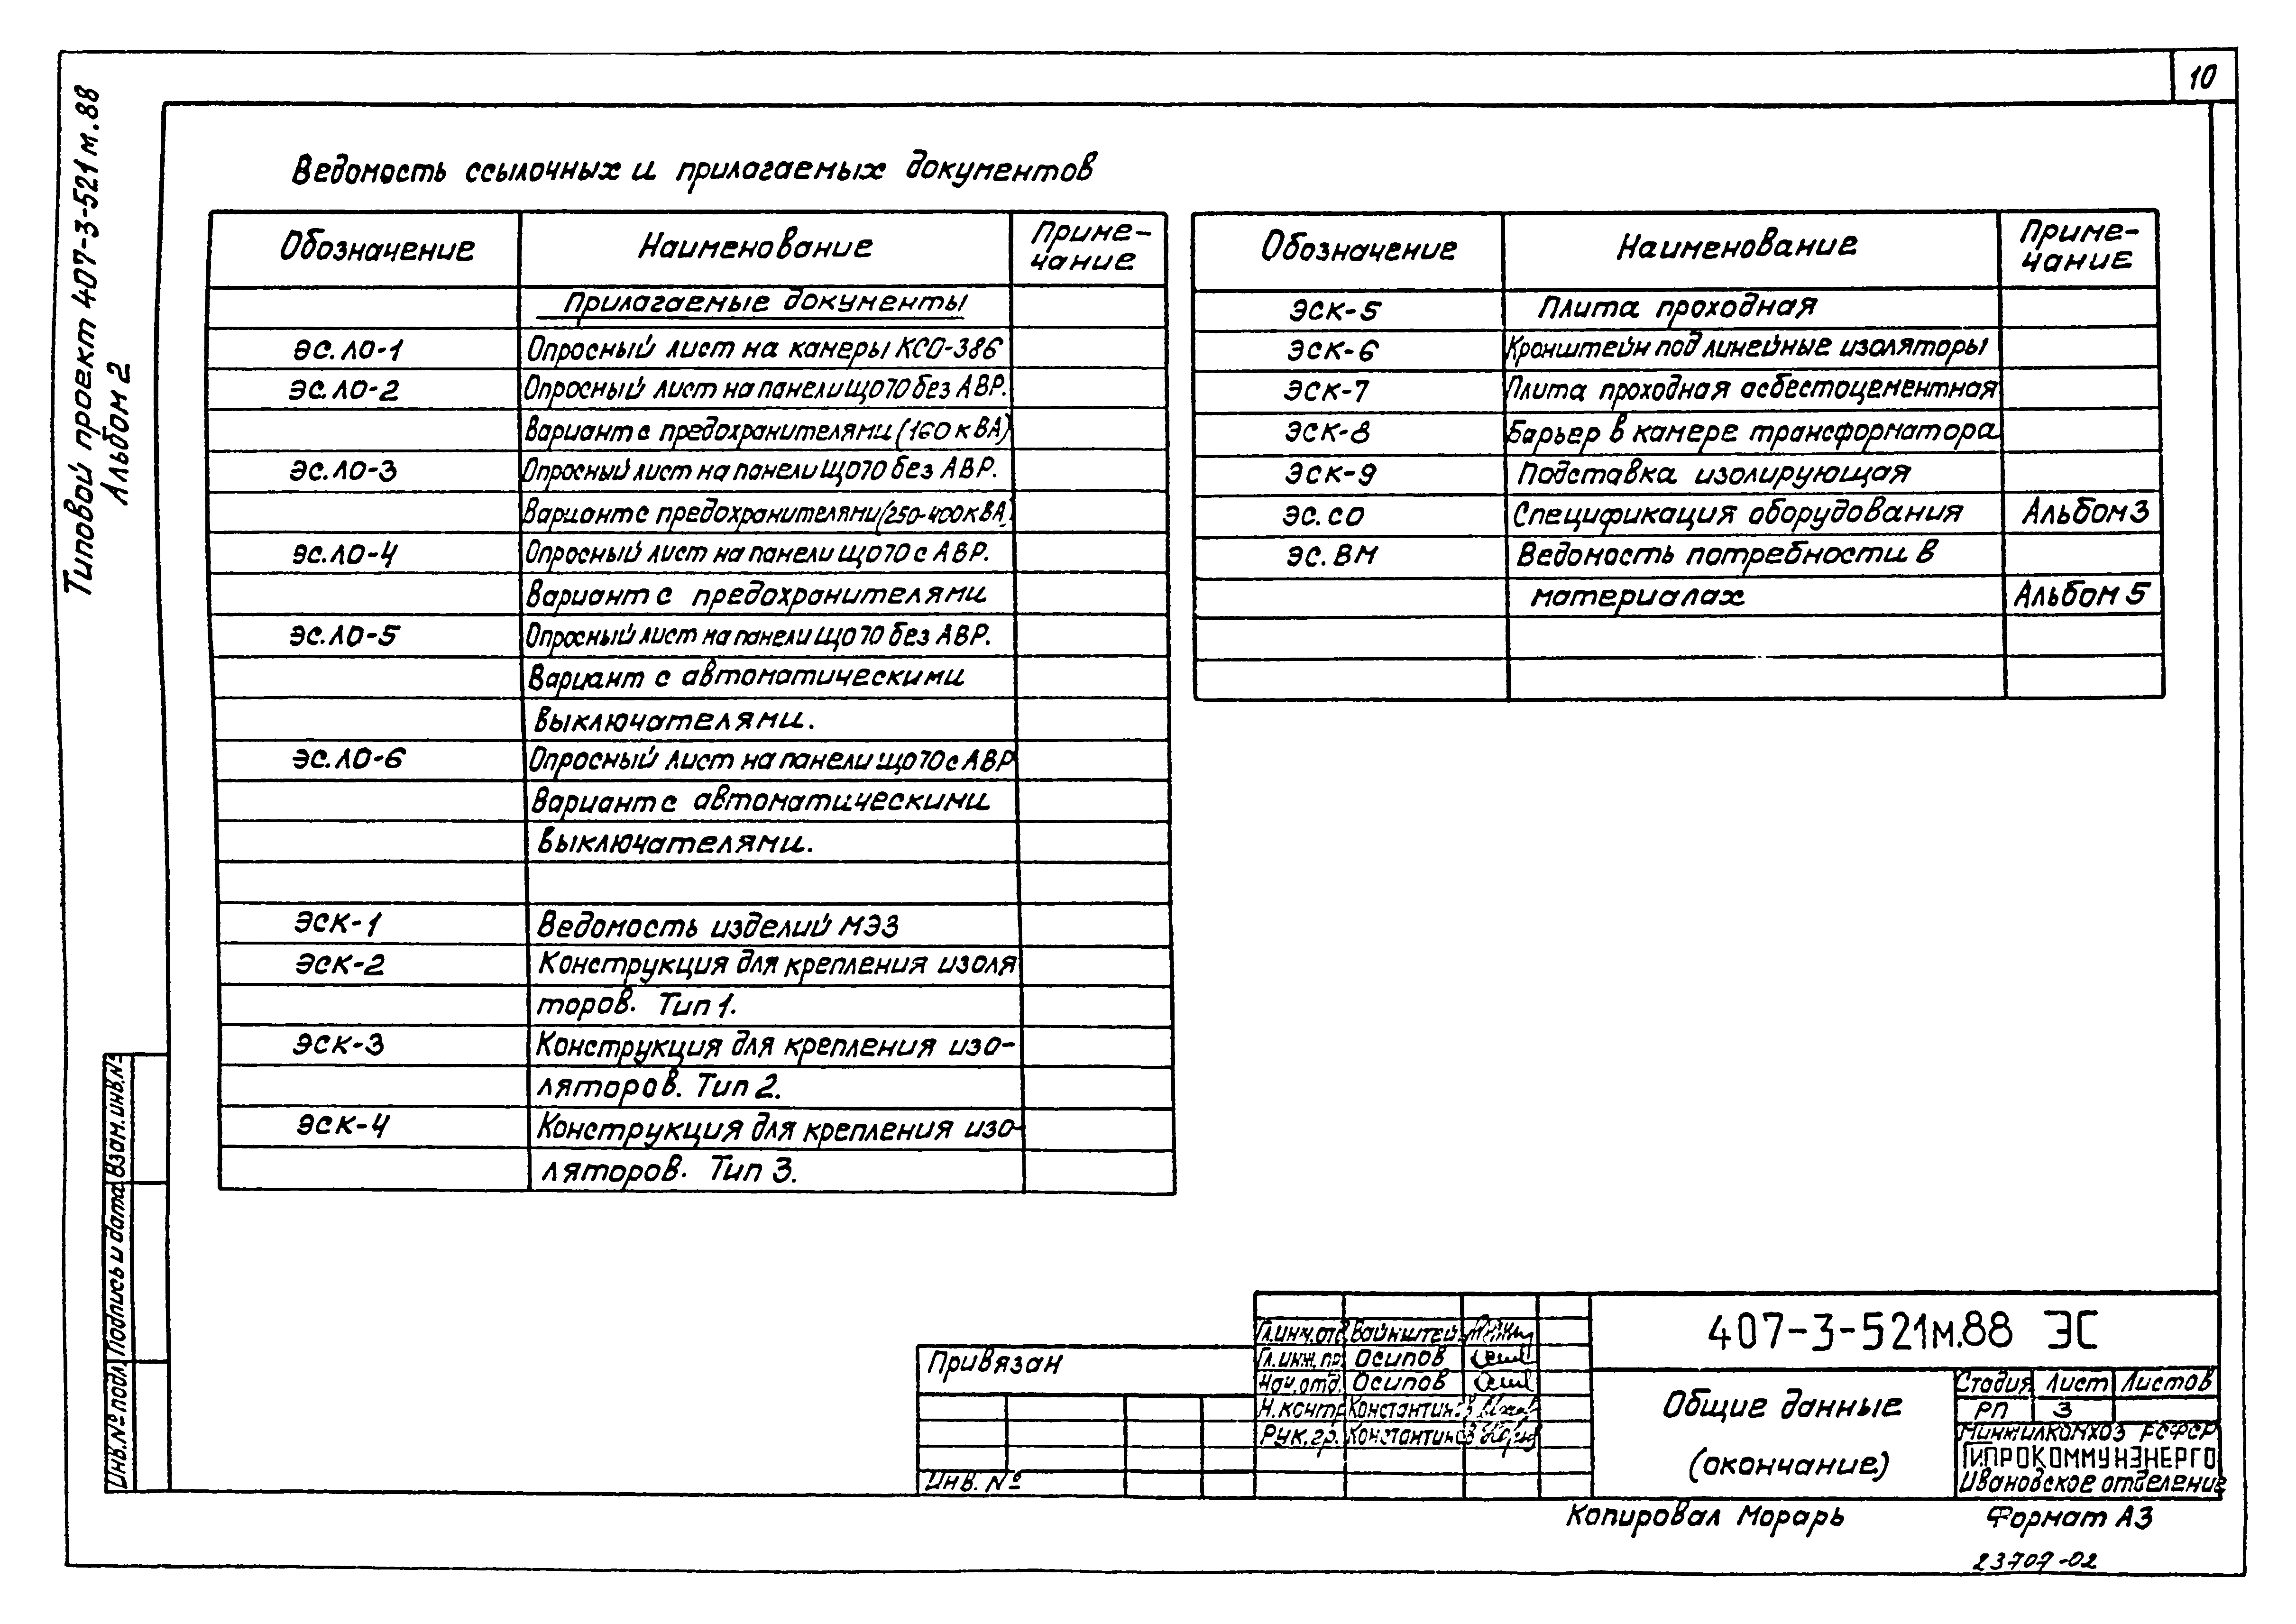 10
Типовой проект 407-3-521м.88
Альбом 2
Ведомость ссылочных и прилагаемых документов
Обозначение Наименование Приме-
чание
Прилагаемые документы
ЭС.ЛО-1 Опросный лист на камеры КСО-386
ЭС.ЛО-2 Опросный лист на панели ЩО70 без АВР.
Вариант с предохранителями (160 кВА)
ЭС.ЛО-3 Опросный лист на панели ЩО70 без АВР.
Вариант с предохранителями (250-400кВА)
ЭС.ЛО-4 Опросный лист на панели ЩО70 с АВР.
Вариант с предохранителями
ЭС.ЛО-5 Опросный лист на панели ЩО70 без АВР.
Вариант с автоматическими
выключателями.
ЭС.ЛО-6 Опросный лист на панели ЩО70 с АВР
Вариант с автоматическими
выключателями.
ЭСК-1 Ведомость изделий МЭЗ
ЭСК-2 Конструкция для крепления изоля
торов. Тип 1.
ЭСК-3 Конструкция для крепления изо-
ляторов. Тип 2.
ЭСК-4 Конструкция для крепления изо-
ляторов. Тип 3.
Обозначение Наименование Приме-
чание
ЭСК-5 Плита проходная
ЭСК-6 Кронштейн под линейные изоляторы
ЭСК-7 Плита проходная асбестоцементная
ЭСК-8 Барьер в камере трансформатора
ЭСК-9 Подставка изолирующая
ЭС.СО Спецификация оборудования Альбом 3
ЭС.ВМ Ведомость потребности в
материалах Альбом 5
Взам.инв.№
Подпись и дата
Инв.№ подл.
Привязан
Инв. №
Гл.инж.отд Вайнштейн
Гл.инж.пр. Осипов
Нач.отд. Осипов
Н.контр Константинов
Рук.гр. Константинов
407-3-521м.88 ЭС
Общие данные
(окончание)
Стадия Лист Листов
РП 3
Минжилкомхоз РСФСР
ГИПРОКОММУНЭНЕРГО
Ивановское отделение
Копировал Морарь Формат А3
23707-02